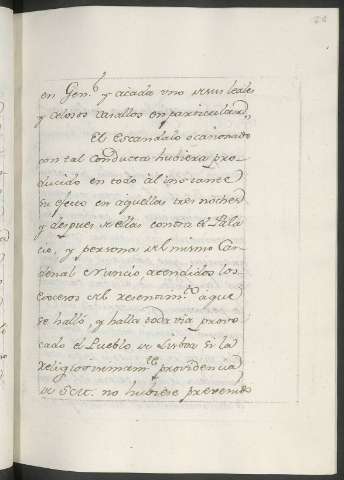 en Gen.l y acada vno de sus leales
y celosos vasallos en particular.
El Escandalo ocasionado
con tal conducta hubiera pro-
ducido en todo àl instante
su efecto en aquellas tres noches
y despues de ellas contra el Pala-
cio, y persona del mismo Car-
denal Nuncio atendidos los
excesos del resentim.to aque
se halló, y halla toda via provo-
cado el Pueblo de Lisboa si la
Religiosissimam.te providencia
de S. M. no hubiese prevenido